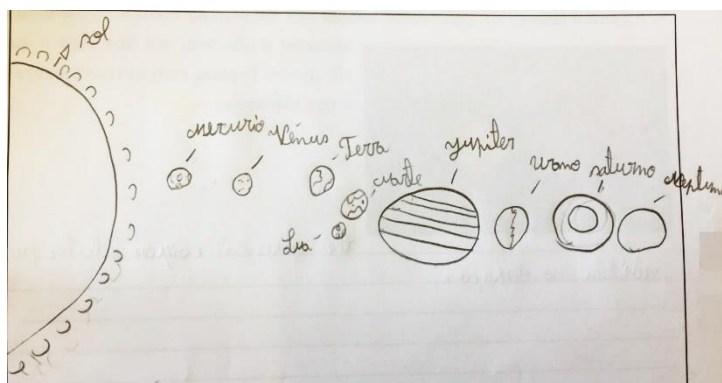 sol
Mercurio
Vênus
Terra
Marte
Lua
Jupiter
urano
saturno
Neptuno